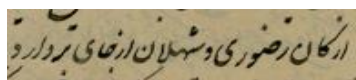 ارکان رضوری و شهلان از جای بردارد و